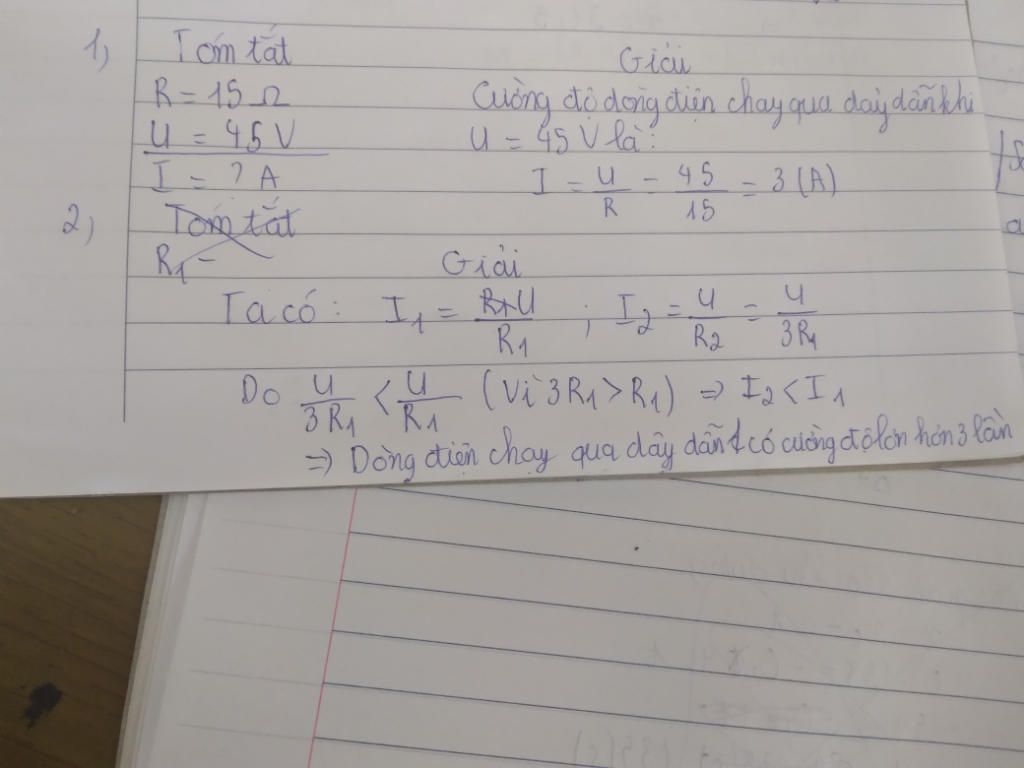 1) Tóm tắt
Giải
R = 15 Ω
Cường độ dòng điện chạy qua dây dẫn khi
U = 45 V
U = 45 V là:
I = ? A
I = U/R = 45/15 = 3 (A)
2) Tóm tắt
R1 =
Giải
Ta có: I1 = U/R1 ; I2 = U/R2 = U/3R1
Do U/3R1 < U/R1 (Vì 3R1 > R1) => I2 < I1
=> Dòng điện chạy qua dây dẫn 1 có cường độ lớn hơn 3 lần